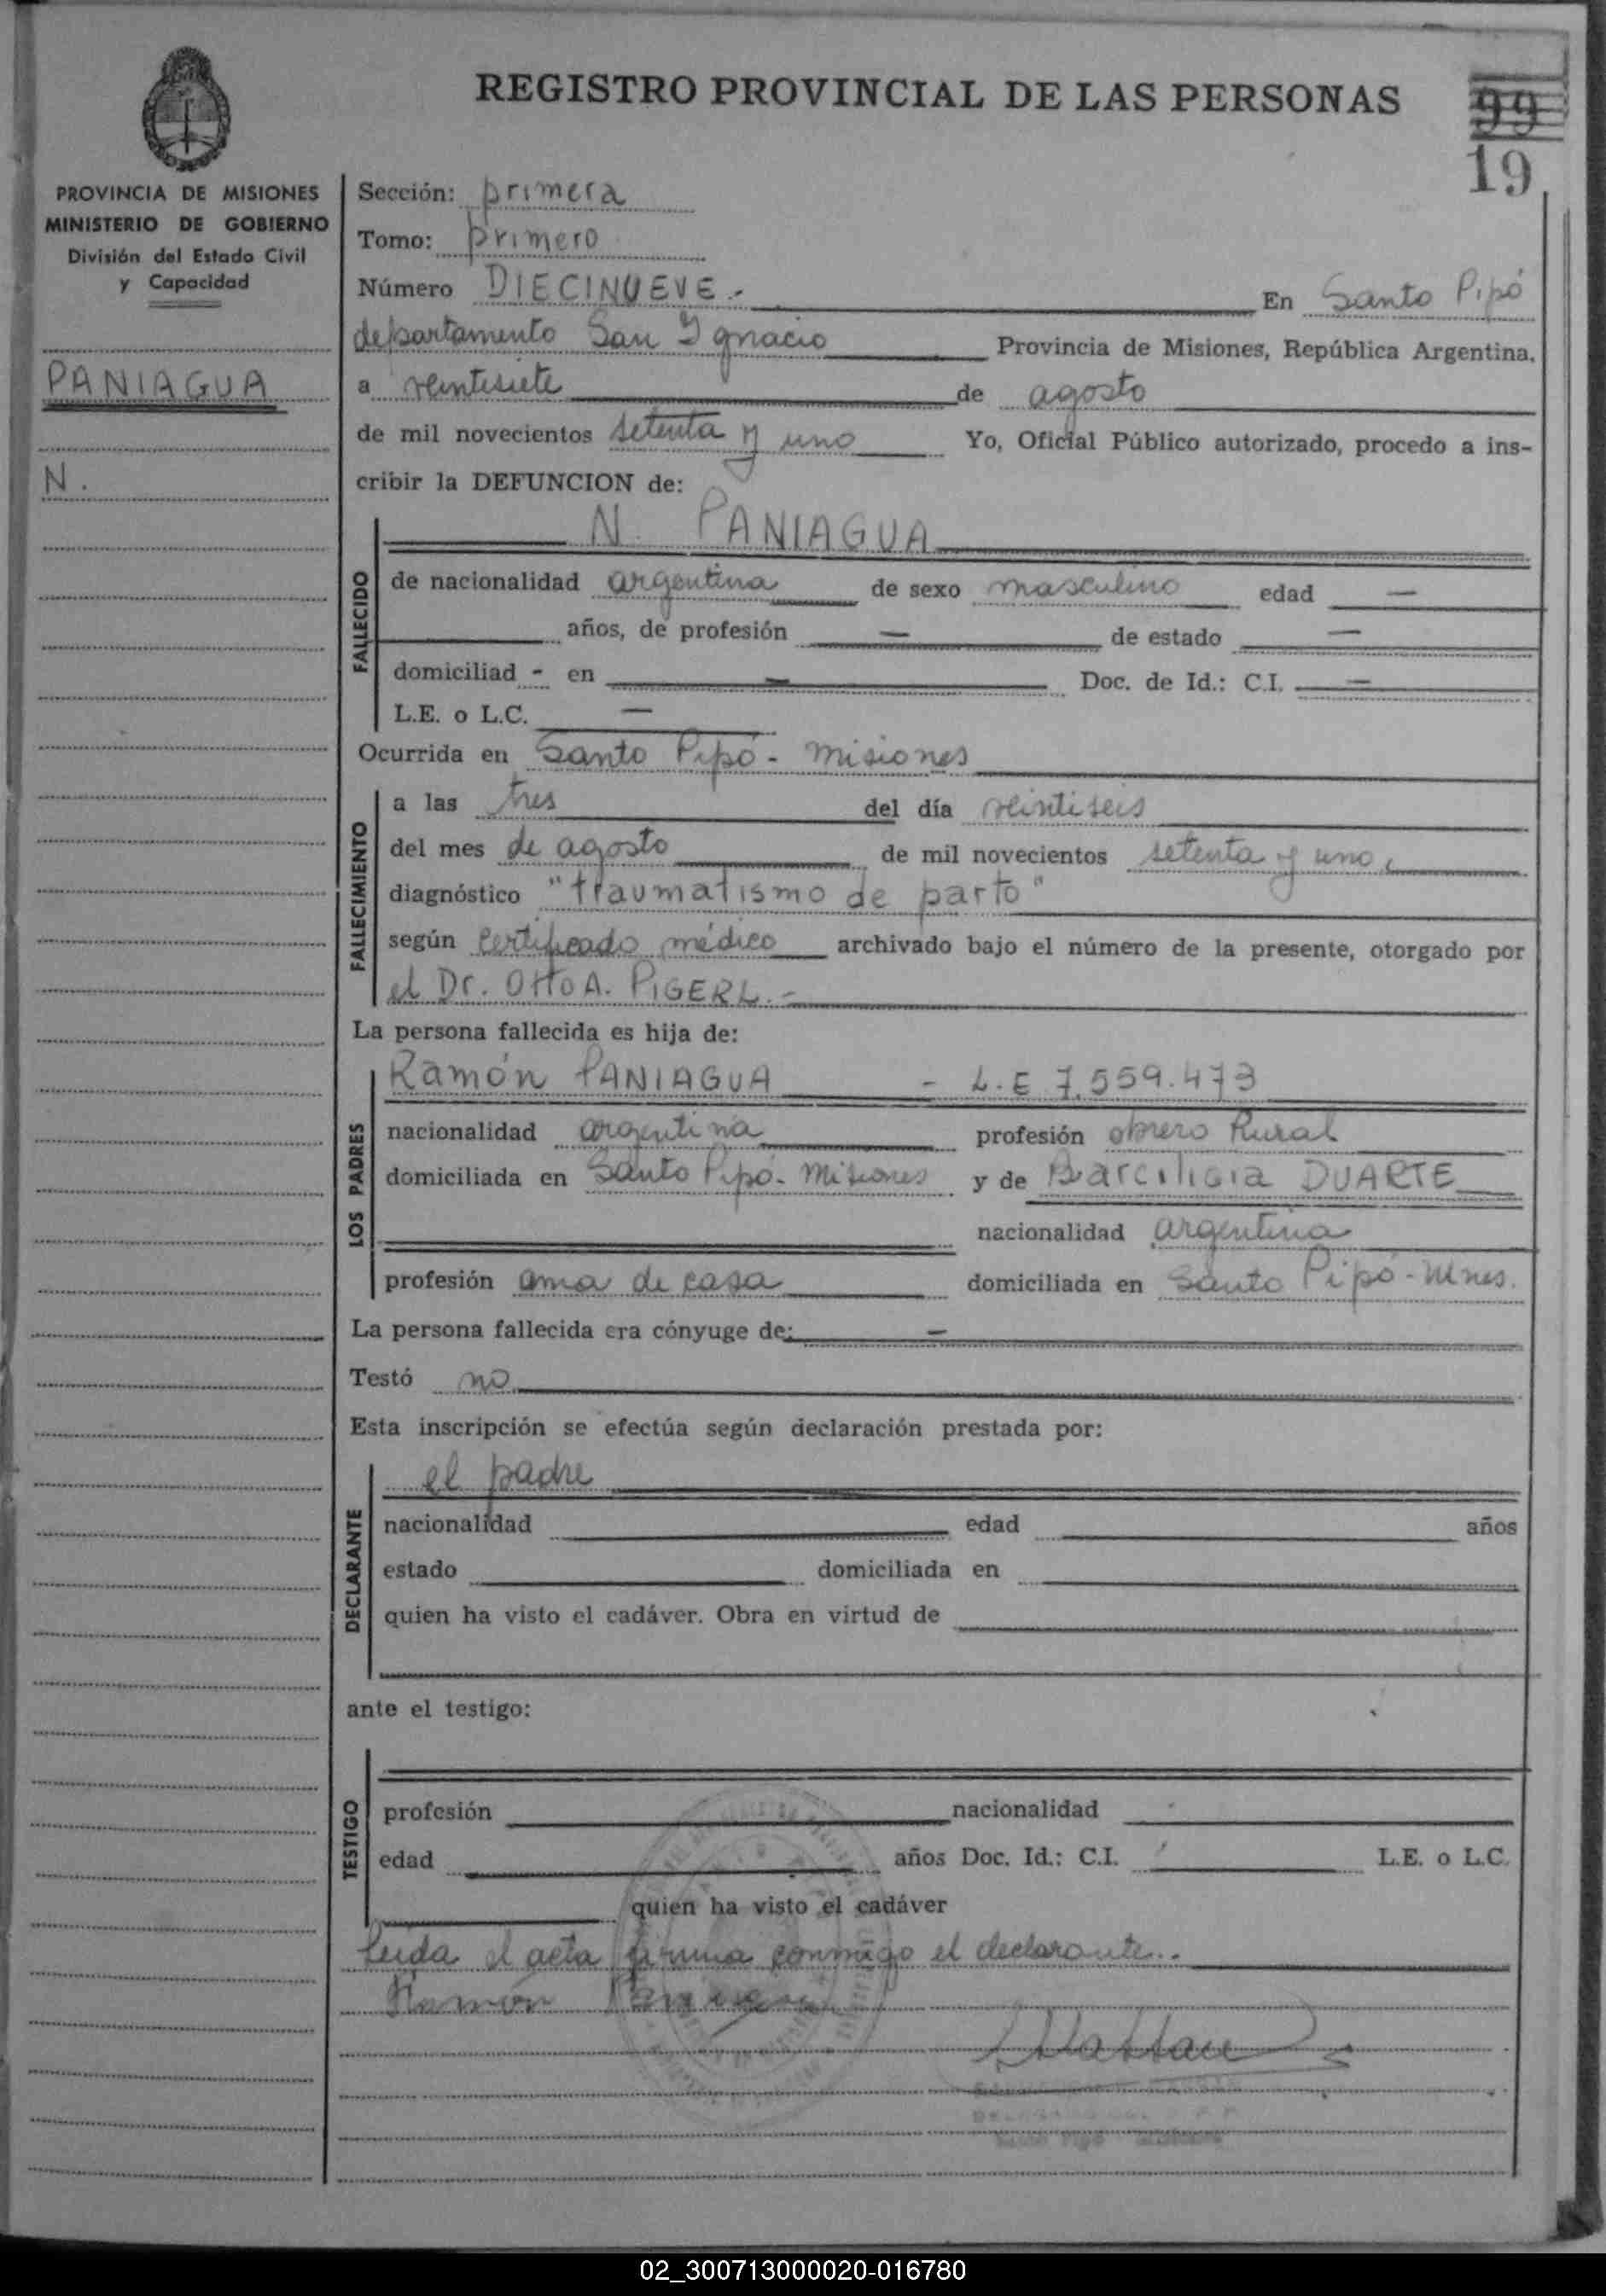 REGISTRO PROVINCIAL DE LAS PERSONAS
99
19
PROVINCIA DE MISIONES
MINISTERIO DE GOBIERNO
División del Estado Civil
y Capacidad
PANIAGUA
N.
Sección: primera
Tomo: primero
Número DIECINUEVE.- En Santo Pipó
departamento San Ignacio Provincia de Misiones, República Argentina,
a veintisiete de agosto
de mil novecientos setenta y uno Yo, Oficial Público autorizado, procedo a ins-
cribir la DEFUNCION de:
FALLECIDO
N. PANIAGUA
de nacionalidad argentina de sexo masculino edad —
años, de profesión — de estado —
domiciliad - en — Doc. de Id.: C.I. —
L.E. o L.C. —
Ocurrida en Santo Pipó - Misiones
FALLECIMIENTO
a las tres del día veintiseis
del mes de agosto de mil novecientos setenta y uno,
diagnóstico "traumatismo de parto"
según certificado médico archivado bajo el número de la presente, otorgado por
el Dr. Otto A. PIGERL.-
La persona fallecida es hija de:
LOS PADRES
Ramón PANIAGUA - L.E 7.559.473
nacionalidad argentina profesión obrero Rural
domiciliada en Santo Pipó - Misiones y de Barcilicia DUARTE
nacionalidad argentina
profesión ama de casa domiciliada en Santo Pipó - Mnes.
La persona fallecida era cónyuge de: —
Testó no
Esta inscripción se efectúa según declaración prestada por:
DECLARANTE
el padre
nacionalidad edad años
estado domiciliada en
quien ha visto el cadáver. Obra en virtud de
ante el testigo:
TESTIGO
profesión nacionalidad
edad años Doc. Id.: C.I. L.E. o L.C.
quien ha visto el cadáver
Leida el acta firma conmigo el declarante..
Ramón Paniagua
02_300713000020-016780